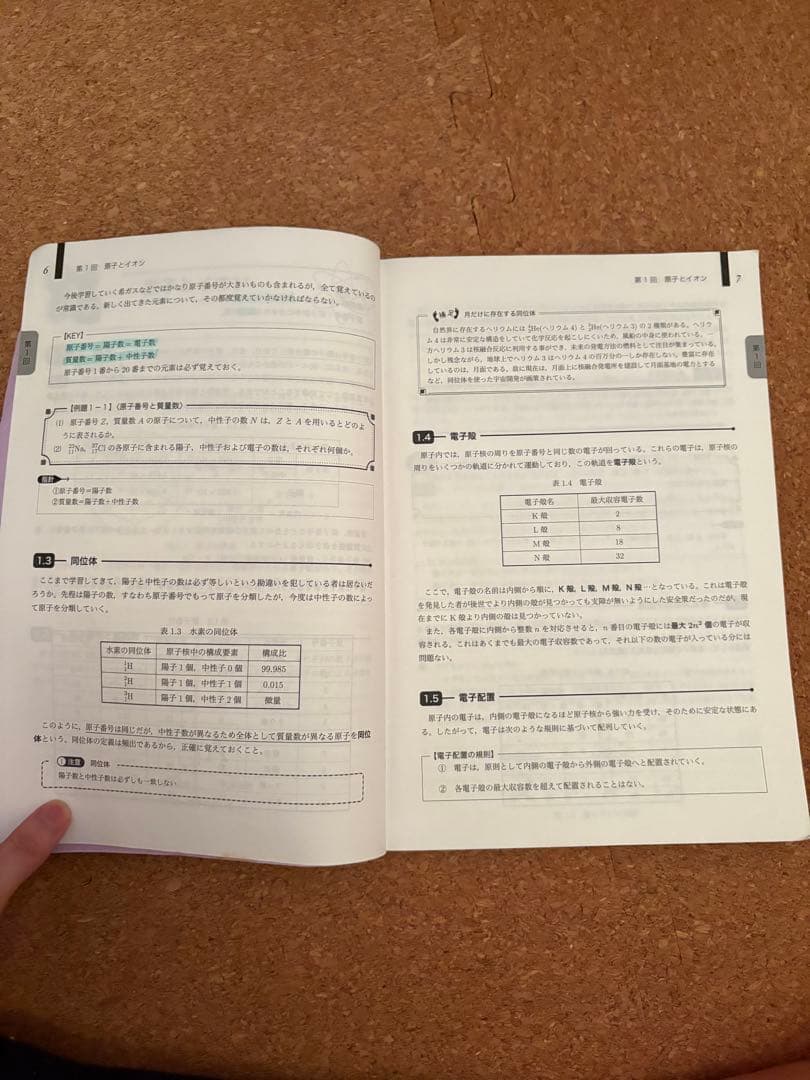 6
第1回 原子とイオン
今後学習していく希ガスなどではかなり原子番号が大きいものも含まれるが，全て覚えているの
が常識である。新しく出てきた元素について，その都度覚えていかなければならない。
【KEY】
原子番号 = 陽子数 = 電子数
質量数 = 陽子数 + 中性子数
原子番号1番から20番までの元素は必ず覚えておく。
【例題1－1】〈原子番号と質量数〉
(1) 原子番号 Z，質量数 A の原子について，中性子の数 N は，Z と A を用いるとどのよ
うに表されるか。
(2) ²³₁₁Na，³⁷₁₇Cl の各原子に含まれる陽子，中性子および電子の数は，それぞれ何個か。
指針
①原子番号＝陽子数
②質量数＝陽子数＋中性子数
第1回
1.3 同位体
ここまで学習してきて，陽子と中性子の数は必ず等しいという勘違いを犯している者は居ないだ
ろうか。先程は陽子の数，すなわち原子番号でもって原子を分類したが，今度は中性子の数によっ
て原子を分類していく。
表1.3 水素の同位体
水素の同位体 原子核中の構成要素 構成比
¹₁H 陽子1個，中性子0個 99.985
²₁H 陽子1個，中性子1個 0.015
³₁H 陽子1個，中性子2個 微量
このように，原子番号は同じだが，中性子数が異なるため全体として質量数が異なる原子を同位
体という。同位体の定義は頻出であるから，正確に覚えておくこと。
注意 同位体
陽子数と中性子数は必ずしも一致しない
第1回 原子とイオン
7
補足 月だけに存在する同位体
自然界に存在するヘリウムには ⁴₂He(ヘリウム4) と ³₂He(ヘリウム3) の2種類がある。ヘリウ
ム4は非常に安定な構造をしていて化学反応を起こしにくいため，風船の中身に使われている。一
方ヘリウム3は核融合反応に利用する事ができ，未来の発電方法の燃料として注目が集まっている。
しかし残念ながら，地球上でヘリウム3はヘリウム4の百万分の一しか存在しない。豊富に存在
しているのは，月面である。故に現在は，月面上に核融合発電所を建設して月面基地の電力とする
など，同位体を使った宇宙開発が画策されている。
第1回
1.4 電子殻
原子内では，原子核の周りを原子番号と同じ数の電子が回っている。これらの電子は，原子核の
周りをいくつかの軌道に分かれて運動しており，この軌道を電子殻という。
表1.4 電子殻
電子殻名 最大収容電子数
K殻 2
L殻 8
M殻 18
N殻 32
ここで，電子殻の名前は内側から順に，K殻, L殻, M殻, N殻…となっている。これは電子殻
を発見した者が後世でより内側の殻が見つかっても支障が無いようにした安全策だったのだが，現
在までにK殻より内側の殻は見つかっていない。
また，各電子殻に内側から整数 n を対応させると，n 番目の電子殻には最大 2n² 個の電子が収
容される。これはあくまでも最大の電子収容数であって，それ以下の数の電子が入っている分には
問題ない。
1.5 電子配置
原子内の電子は，内側の電子殻になるほど原子核から強い力を受け，そのために安定な状態にあ
る。したがって，電子は次のような規則に基づいて配列していく。
【電子配置の規則】
① 電子は，原則として内側の電子殻から外側の電子殻へと配置されていく。
② 各電子殻の最大収容数を超えて配置されることはない。